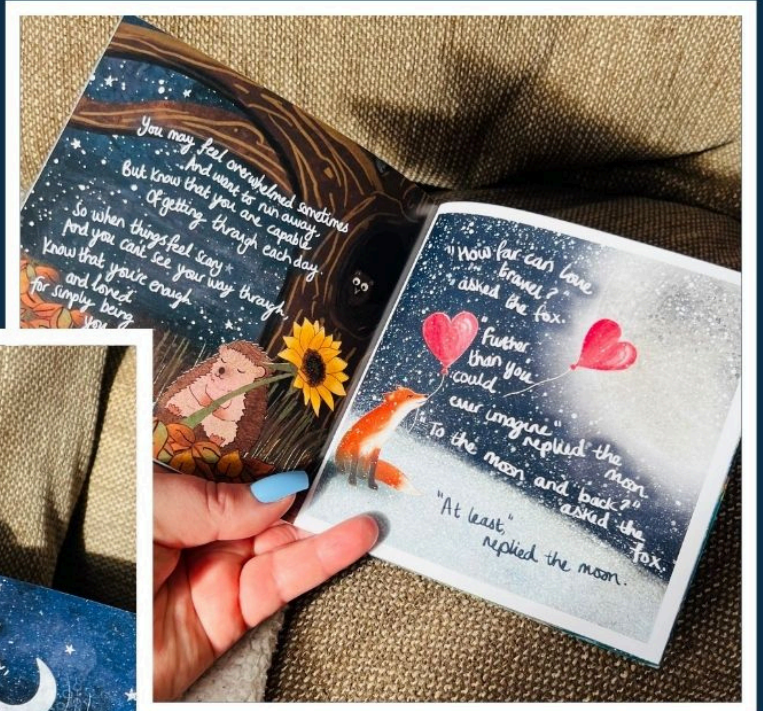 You may feel overwhelmed sometimes
And want to run away,
But know that you are capable
Of getting through each day.
So when things feel scary
And you can't see your way through,
Know that you're enough
and loved
for simply being
you
"How far can love
travel?"
asked the fox.
"Further
than you
could
ever imagine"
replied the
moon
"To the moon and back?"
asked the
fox.
"At least,"
replied the moon.